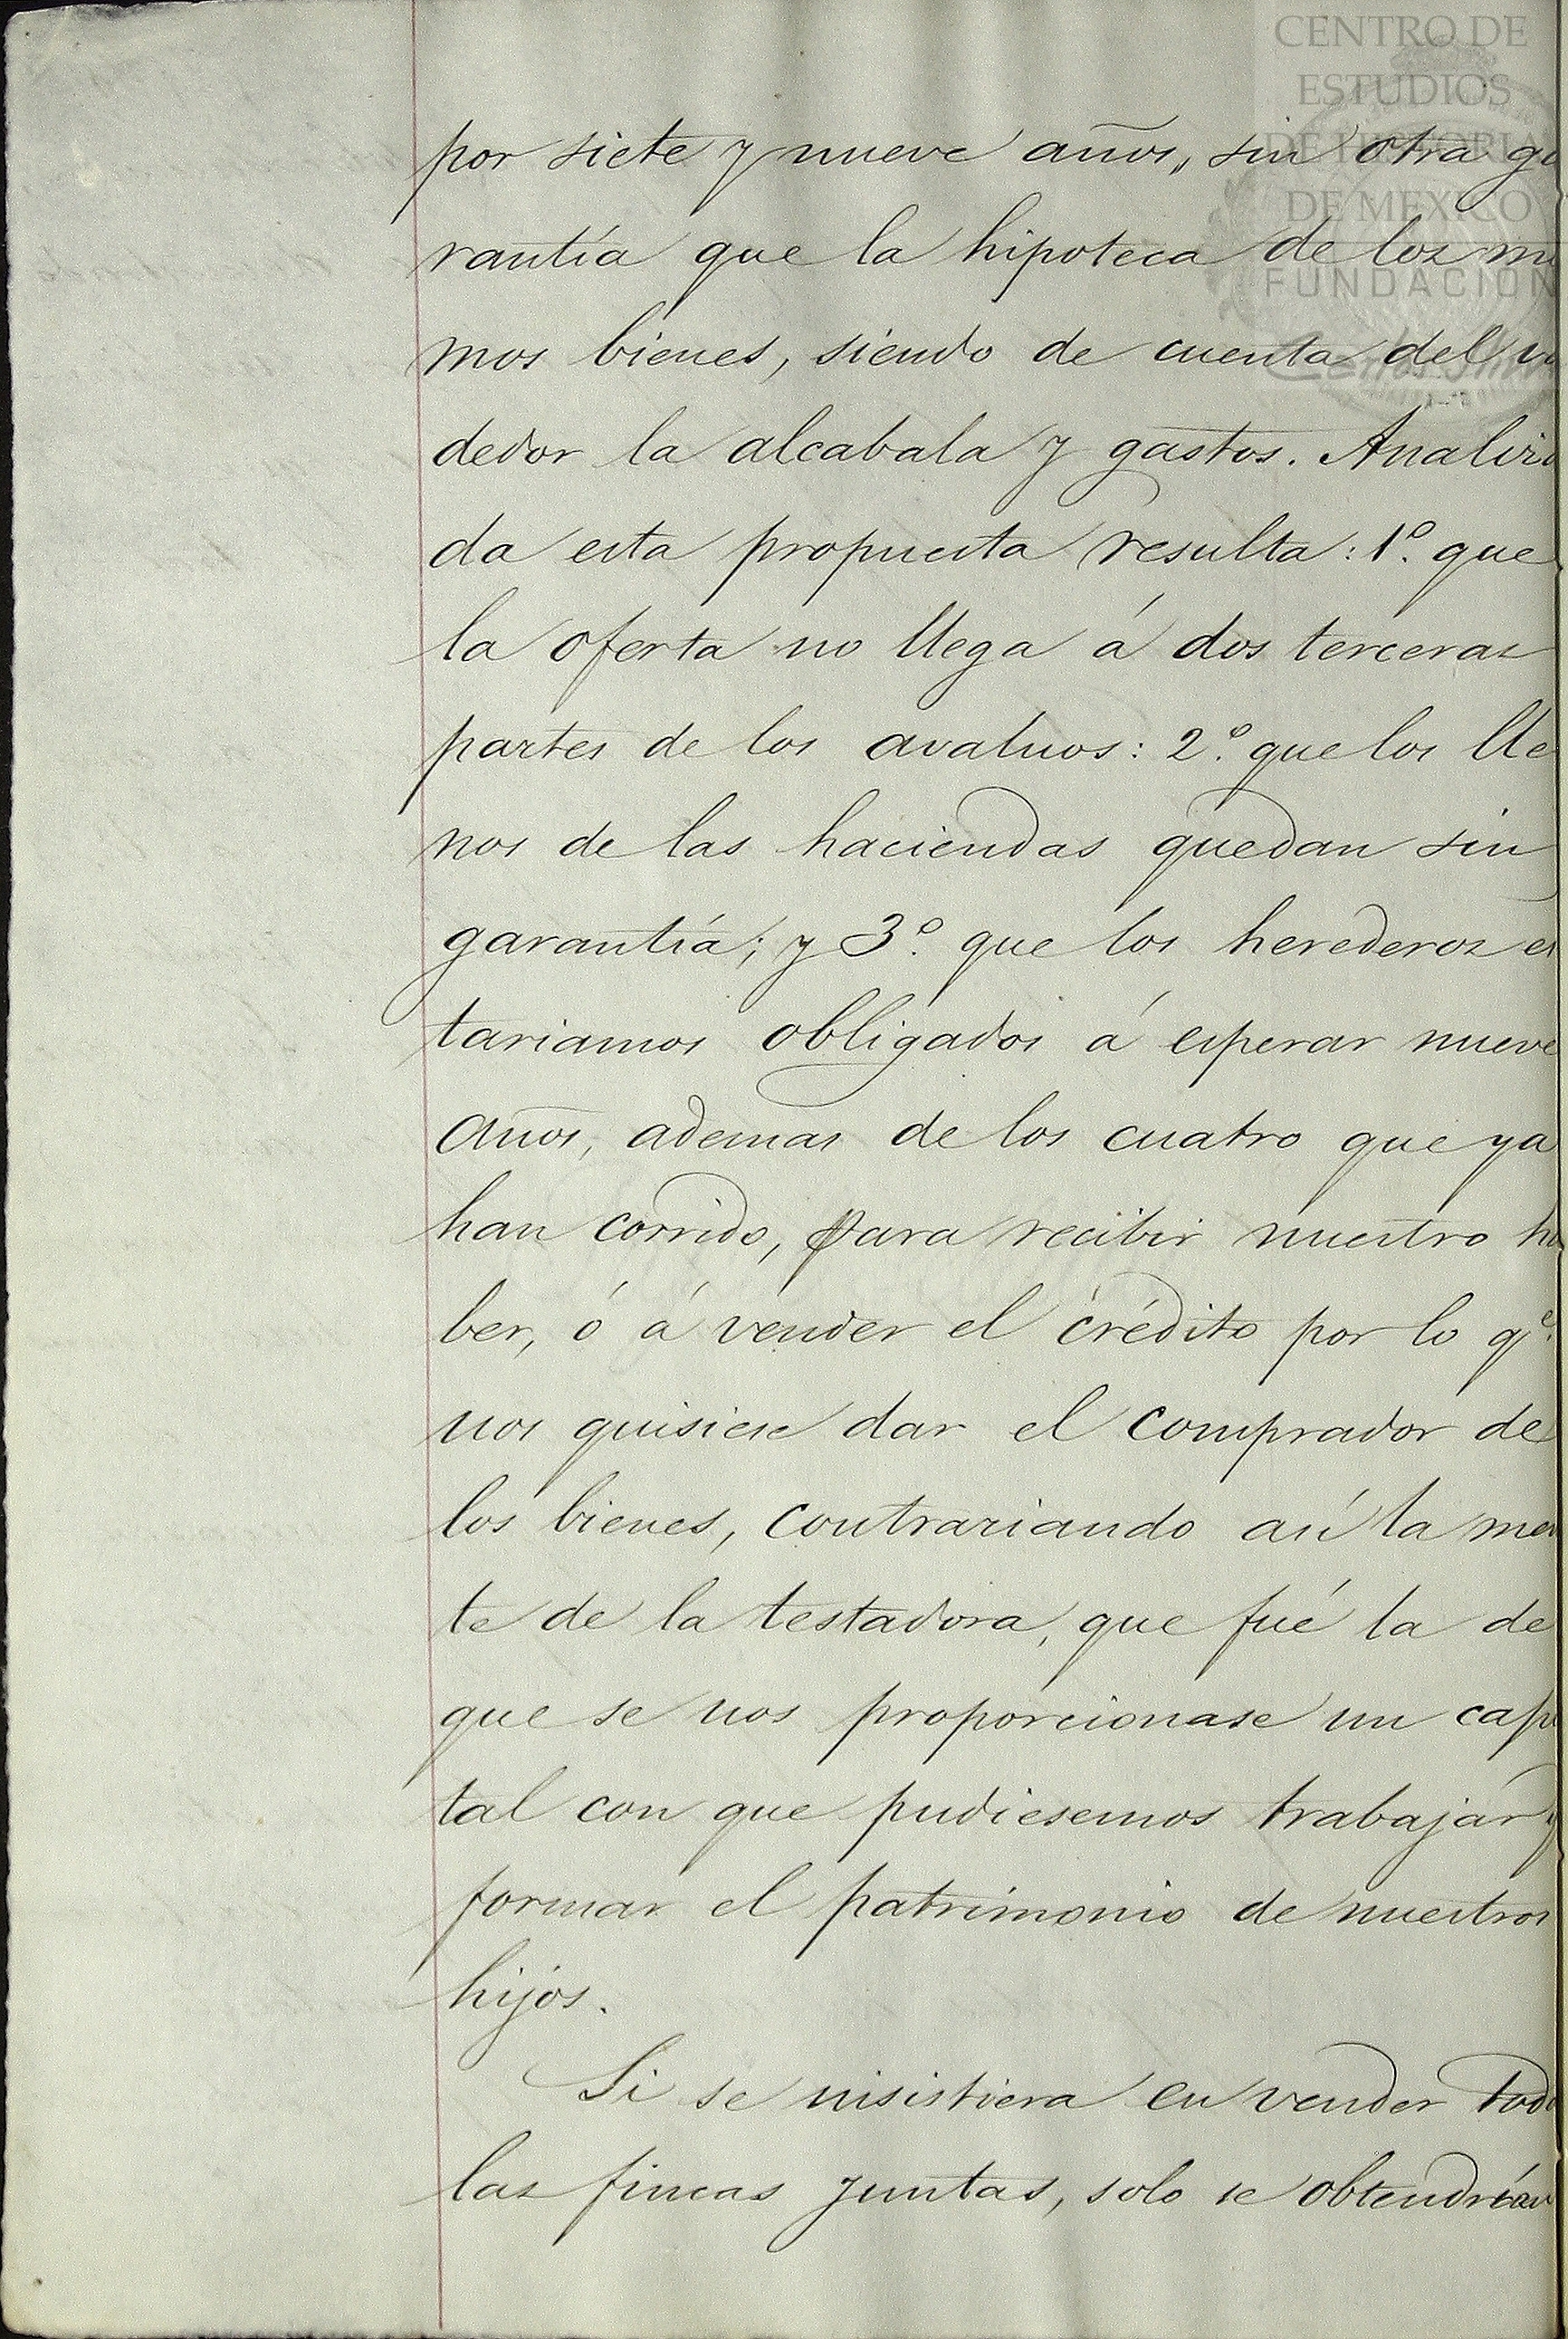 CENTRO DE
ESTUDIOS
DE HISTORIA
DE MEXICO
FUNDACIÓN
por siete y nueve años, sin otra ga
rantía que la hipoteca de los mi
mos bienes, siendo de cuenta del ve
dedor la alcabala y gastos. Analiza
da esta propuesta resulta: 1º. que
la oferta no llega á dos terceras
partes de los avaluos: 2º. que los lle
nos de las haciendas quedan sin
garantía; y 3º. que los herederos es
tariamos obligados á esperar nueve
años, ademas de los cuatro que ya
han corrido, para recibir nuestro ha
ber, ó á vender el crédito por lo qe.
nos quisiese dar el comprador de
los bienes, contrariando así la men
te de la testadora, que fué la de
que se nos proporcionase un capi
tal con que pudiesemos trabajar y
formar el patrimonio de nuestros
hijos.
Si se insistiera en vender tod
las fincas juntas, solo se obtendrían